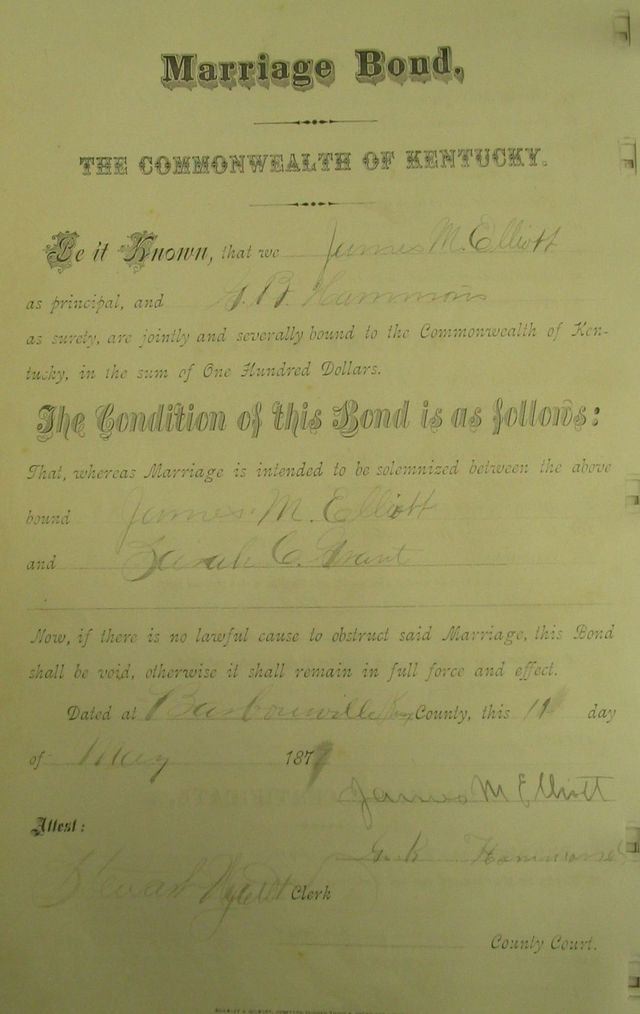 Marriage Bond,
THE COMMONWEALTH OF KENTUCKY.
Be it Known, that we James M. Elliott
as principal, and B. Hammons
as surety, are jointly and severally bound to the Commonwealth of Ken-
tucky, in the sum of One Hundred Dollars.
The Condition of this Bond is as follows:
That, whereas Marriage is intended to be solemnized between the above
bound James M. Elliott
and Sarah C. Grant
Now, if there is no lawful cause to obstruct said Marriage, this Bond
shall be void, otherwise it shall remain in full force and effect.
Dated at Barbourville Ky County, this day
of May 187
James M Elliott
Attest:
Clerk
County Court.